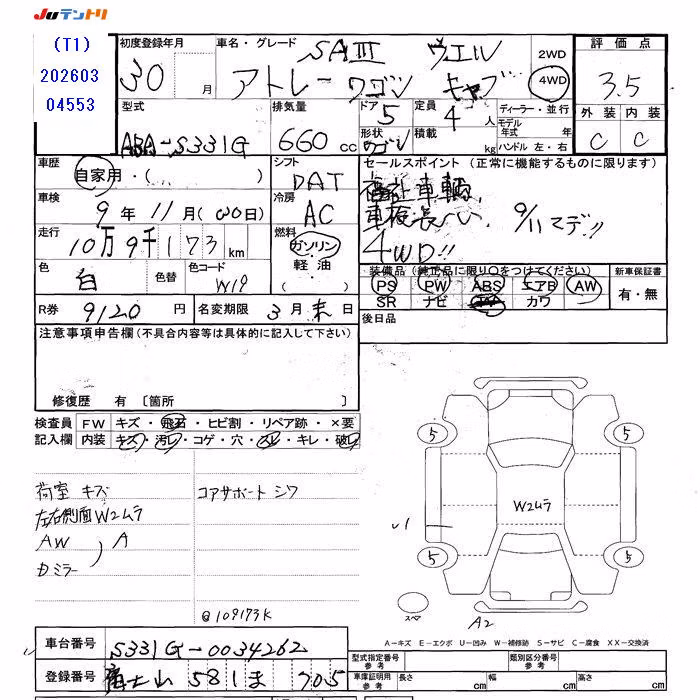 Juテントリ
(T1)
202603
04553
初度登録年月
30
月
車名・グレード
SAⅢ ウエル
アトレーワゴン キャブ
2WD
4WD
評価点
3.5
外装 内装
C C
型式
ABA-S331G
排気量
660 cc
ドア
5
形状
ワゴン
定員
4人
積載
kg
ディーラー・並行
モデル
年式 年
ハンドル 左・右
車歴
自家用・( )
シフト
DAT
セールスポイント(正常に機能するものに限ります)
福祉車輌
車検長い 9/11マデ!!
4WD!!
車検
9年11月(30日)
冷房
AC
走行
10万9千173km
燃料
ガソリン
軽油
( )
色
白
色替
色コード
W19
装備品(純正品に限り○をつけてください)
PS PW ABS エアB AW
SR ナビ カワ
新車保証書
有・無
R券
9120円
名変期限
3月末日
後日品
注意事項申告欄(不具合内容等は具体的に記入して下さい)
修復歴 有〔箇所 〕
検査員
記入欄
FW キズ・飛石・ヒビ割・リペア跡・×要
内装 キズ・汚レ・コゲ・穴・スレ・キレ・破レ
荷室 キズ
コアサポート シワ
左右側面W2ムラ
AW
A
Dミラー
@109173K
5
5
5
5
W2ムラ
1
スペア
A2
A-キズ E-エクボ U-凹み W-補修跡 S-サビ C-腐食 XX-交換済
車台番号
S331G-0034262
登録番号
富士山 581 ま 705
型式指定番号
参考
類別区分番号
参考
車庫証明用
参考
長さ cm
幅 cm
高さ cm